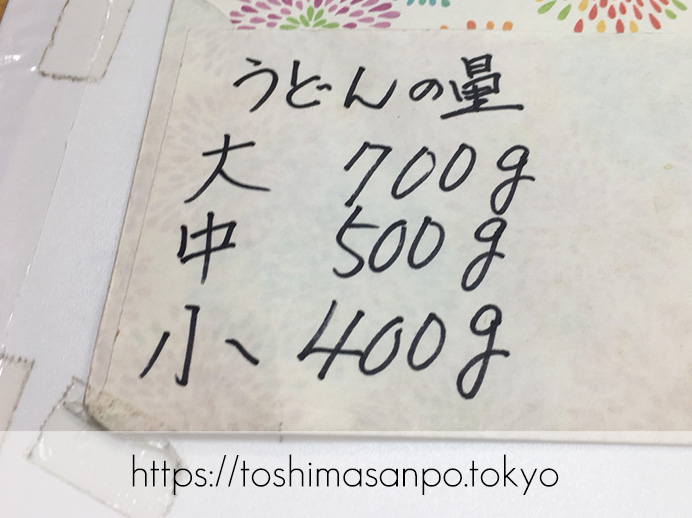 うどんの量
大 700g
中 500g
小 400g
https://toshimasanpo.tokyo